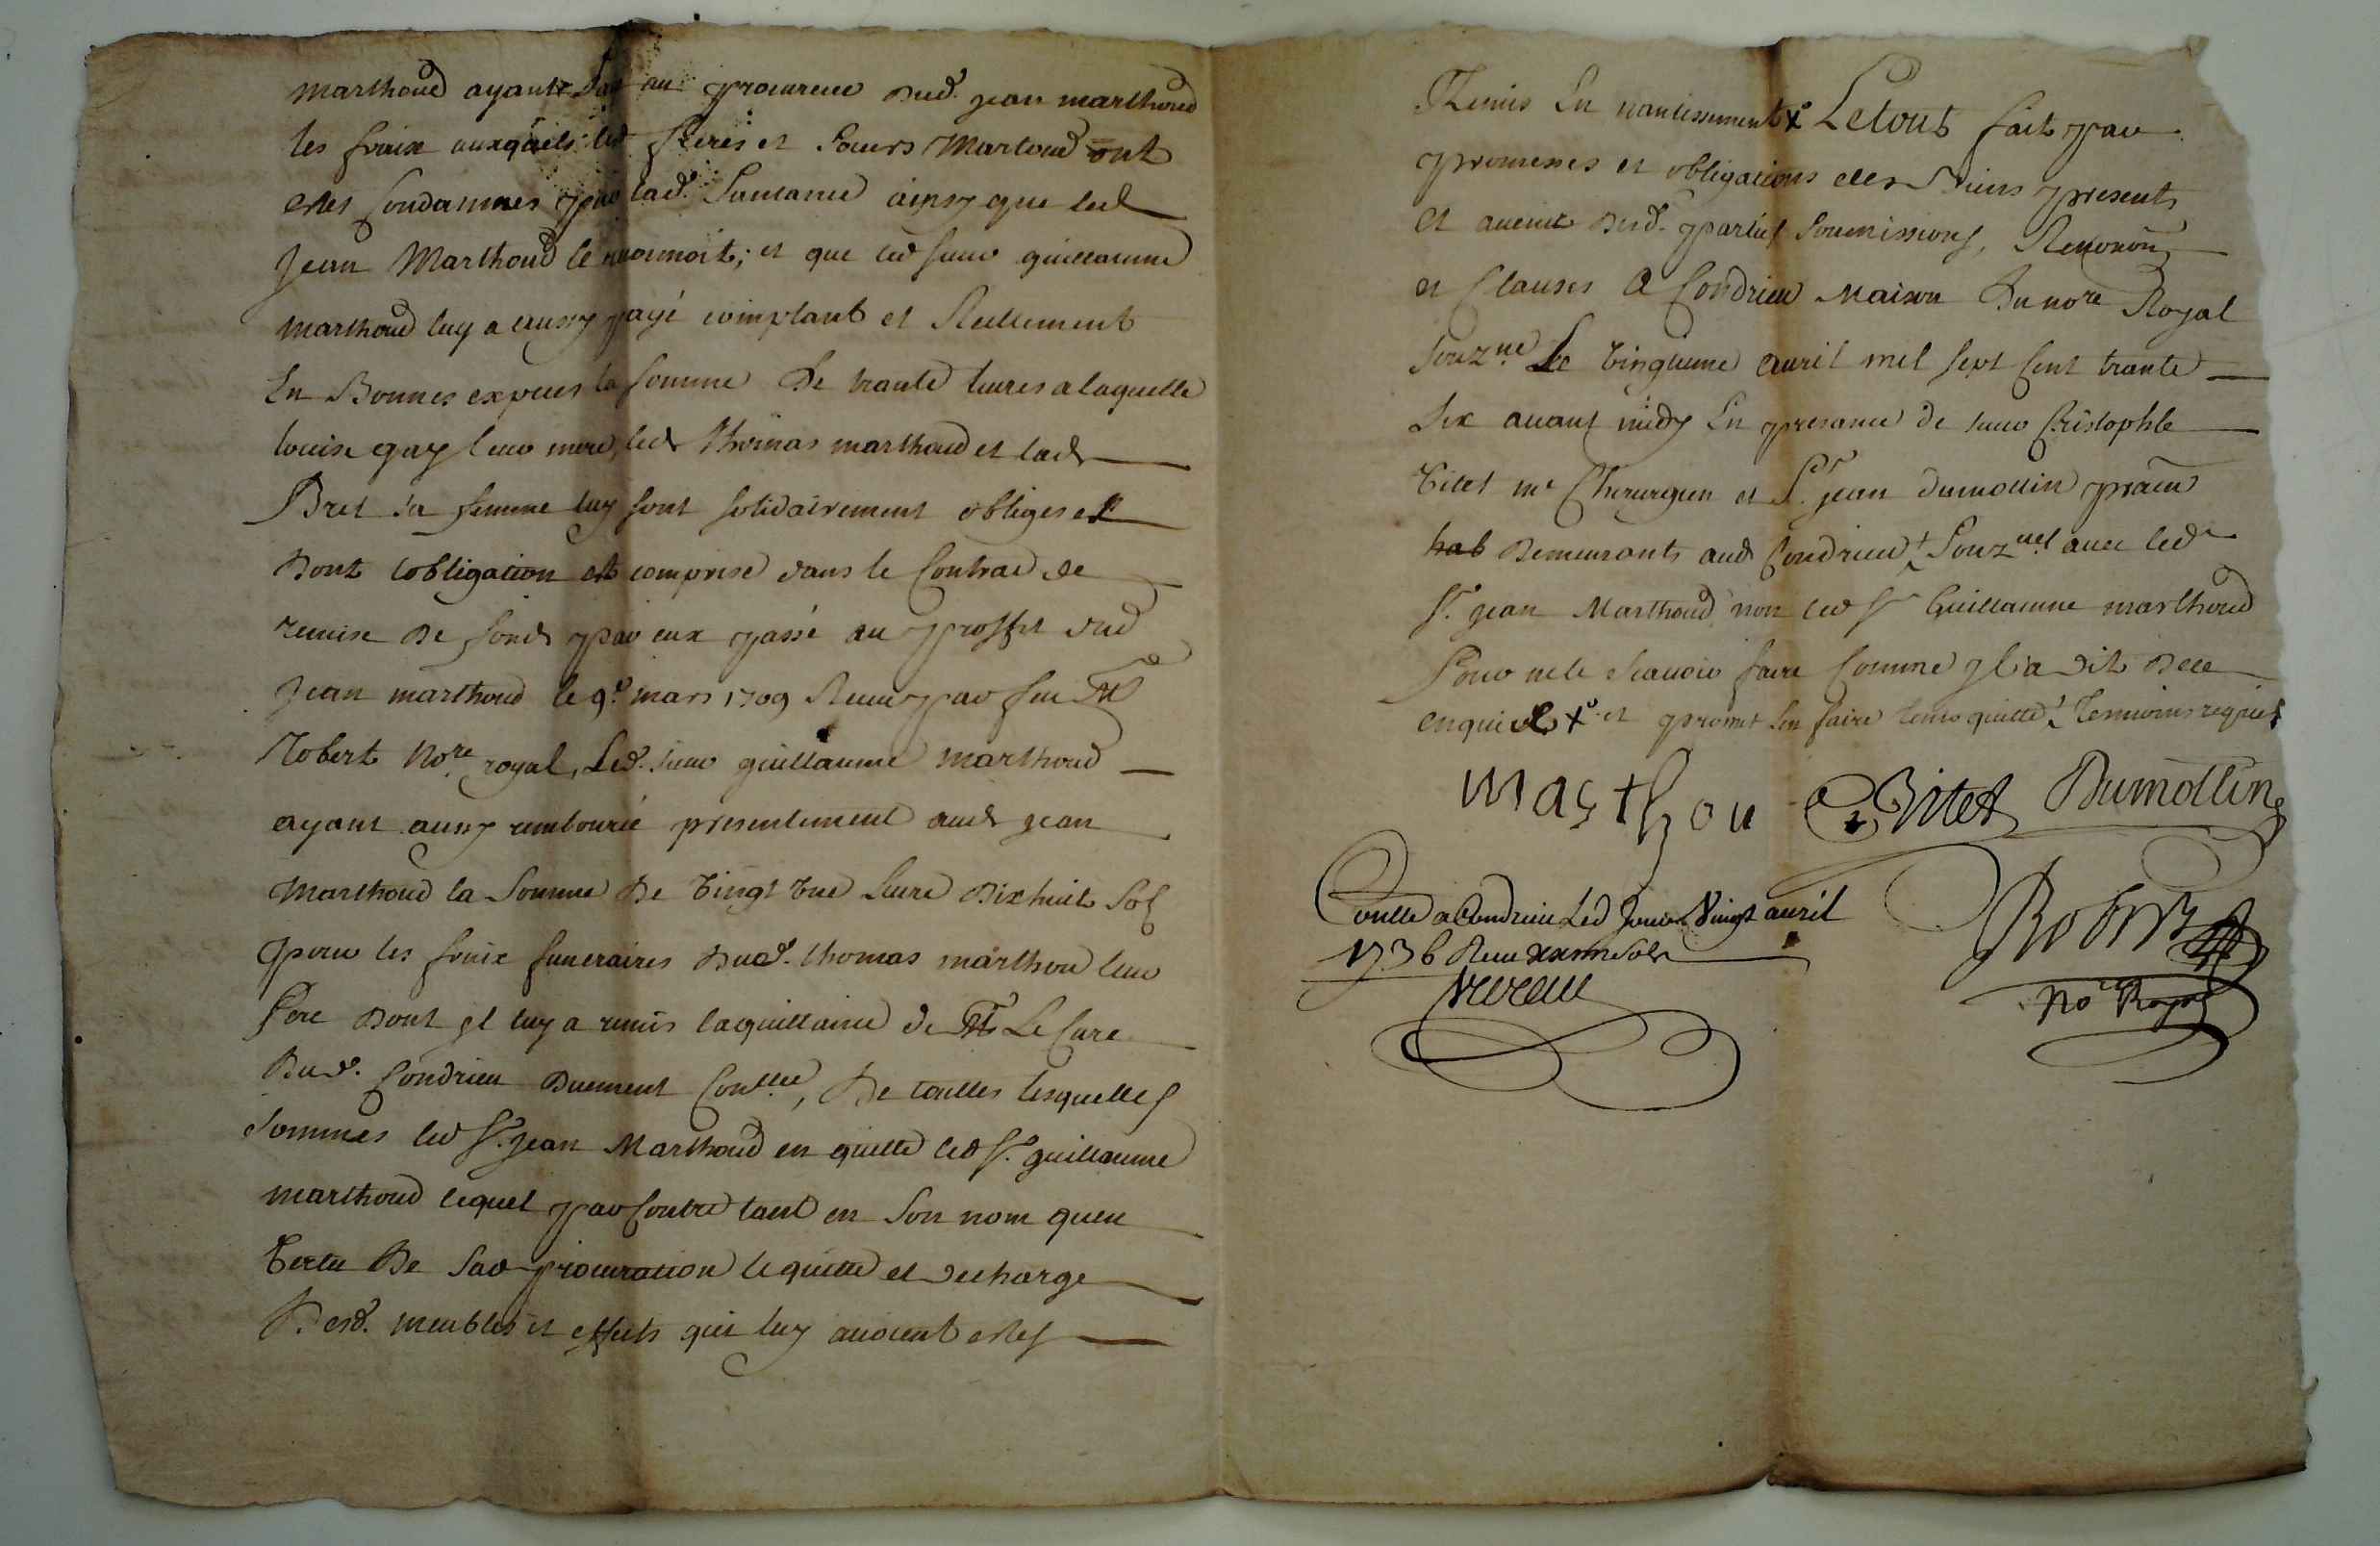 Marthoud ayant au procureur dud. jean marthoud
les fraix auxquels led. freres et soeurs Martoud ont
estes Condamnes par lad. Santance ainsy que led
Jean Marthoud le reconnoit; et que led sieur guillaume
marthoud luy a aussy payé comptant et Reellement
En Bonnes expeces la somme De trante livres a laquelle
louise gay leur mere, led Thomas marthoud et lad
Bret sa femme luy sont solidairement obliges et
Dont lobligation est comprise dans le Contract de
remise De fonds par eux passé au proffit dud
Jean marthoud le 9e. mars 1709 Receu par feu Me
Robert Nore. royal, Led. sieur guillaume marthoud
ayant aussy rembourcé presentement aud jean
Marthoud la Somme De Vingt Une Livre Dix huit Sols
pour les fraix funeraires Dud. thomas marthou leur
Pere Dont yl luy a remis la quittance de Me Le Cure
Dud. Condrieu Duement Conllée, De touttes lesquelles
sommes led Sr. Jean Marthoud en quitte led Sr. guillaume
marthoud lequel par Contre tant en Son nom quen
Vertu De sad procuration le quitte et decharge
Desd. meubles et effets qui luy avoient estes
Remis En nantissement x Le tout fait par
promesses et obligations des Biens presents
et avenir desd. parties soumissions, Renonōn
et Clauses A Condrieu Maison Du nore Royal
souzne. Le Vingtieme avril mil sept Cent trante
Six avant midy En presance de sieur Cristophle
Vitet me Chirurgien et Sr. jean dumollin pratn
hab Demeurants aud Condrieu + Souznes avec led
Sr. jean Marthoud non led Sr Guillaume marthoud
Pour ne le Scavoir faire Comme yl a dit De ce
enquis x et promet len faire tenir quitte Temoins requis
masthou CVitet Dumollin
Conlle a Condrieu Led Jour Vingt avril
1736 Receu sols
Robert
Nore Royal